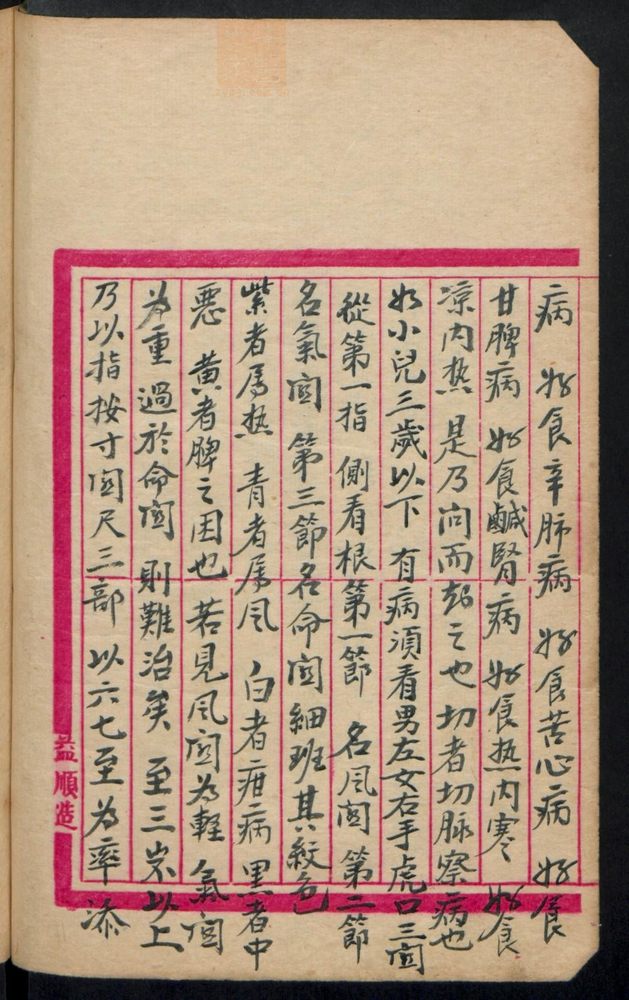 病 好食辛肺病 好食苦心病 好食
甘脾病 好食鹹腎病 好食热内寒 好食
凉内热 是乃问而知之也切者切脉察病也
如小兒三歲以下 有病須看男左女右手虎口三関
從第一指 側看根第一節 名风関 第二節
名氣関 第三節名命関細班其紋色
紫者属热 青者属风 白者疳病黑者中
惡 黄者脾之困也若見风関为輕 氣関
为重 過於命関 則難治矣 至三岁以上
乃以指按寸関尺三部 以六七至为率添
益順造